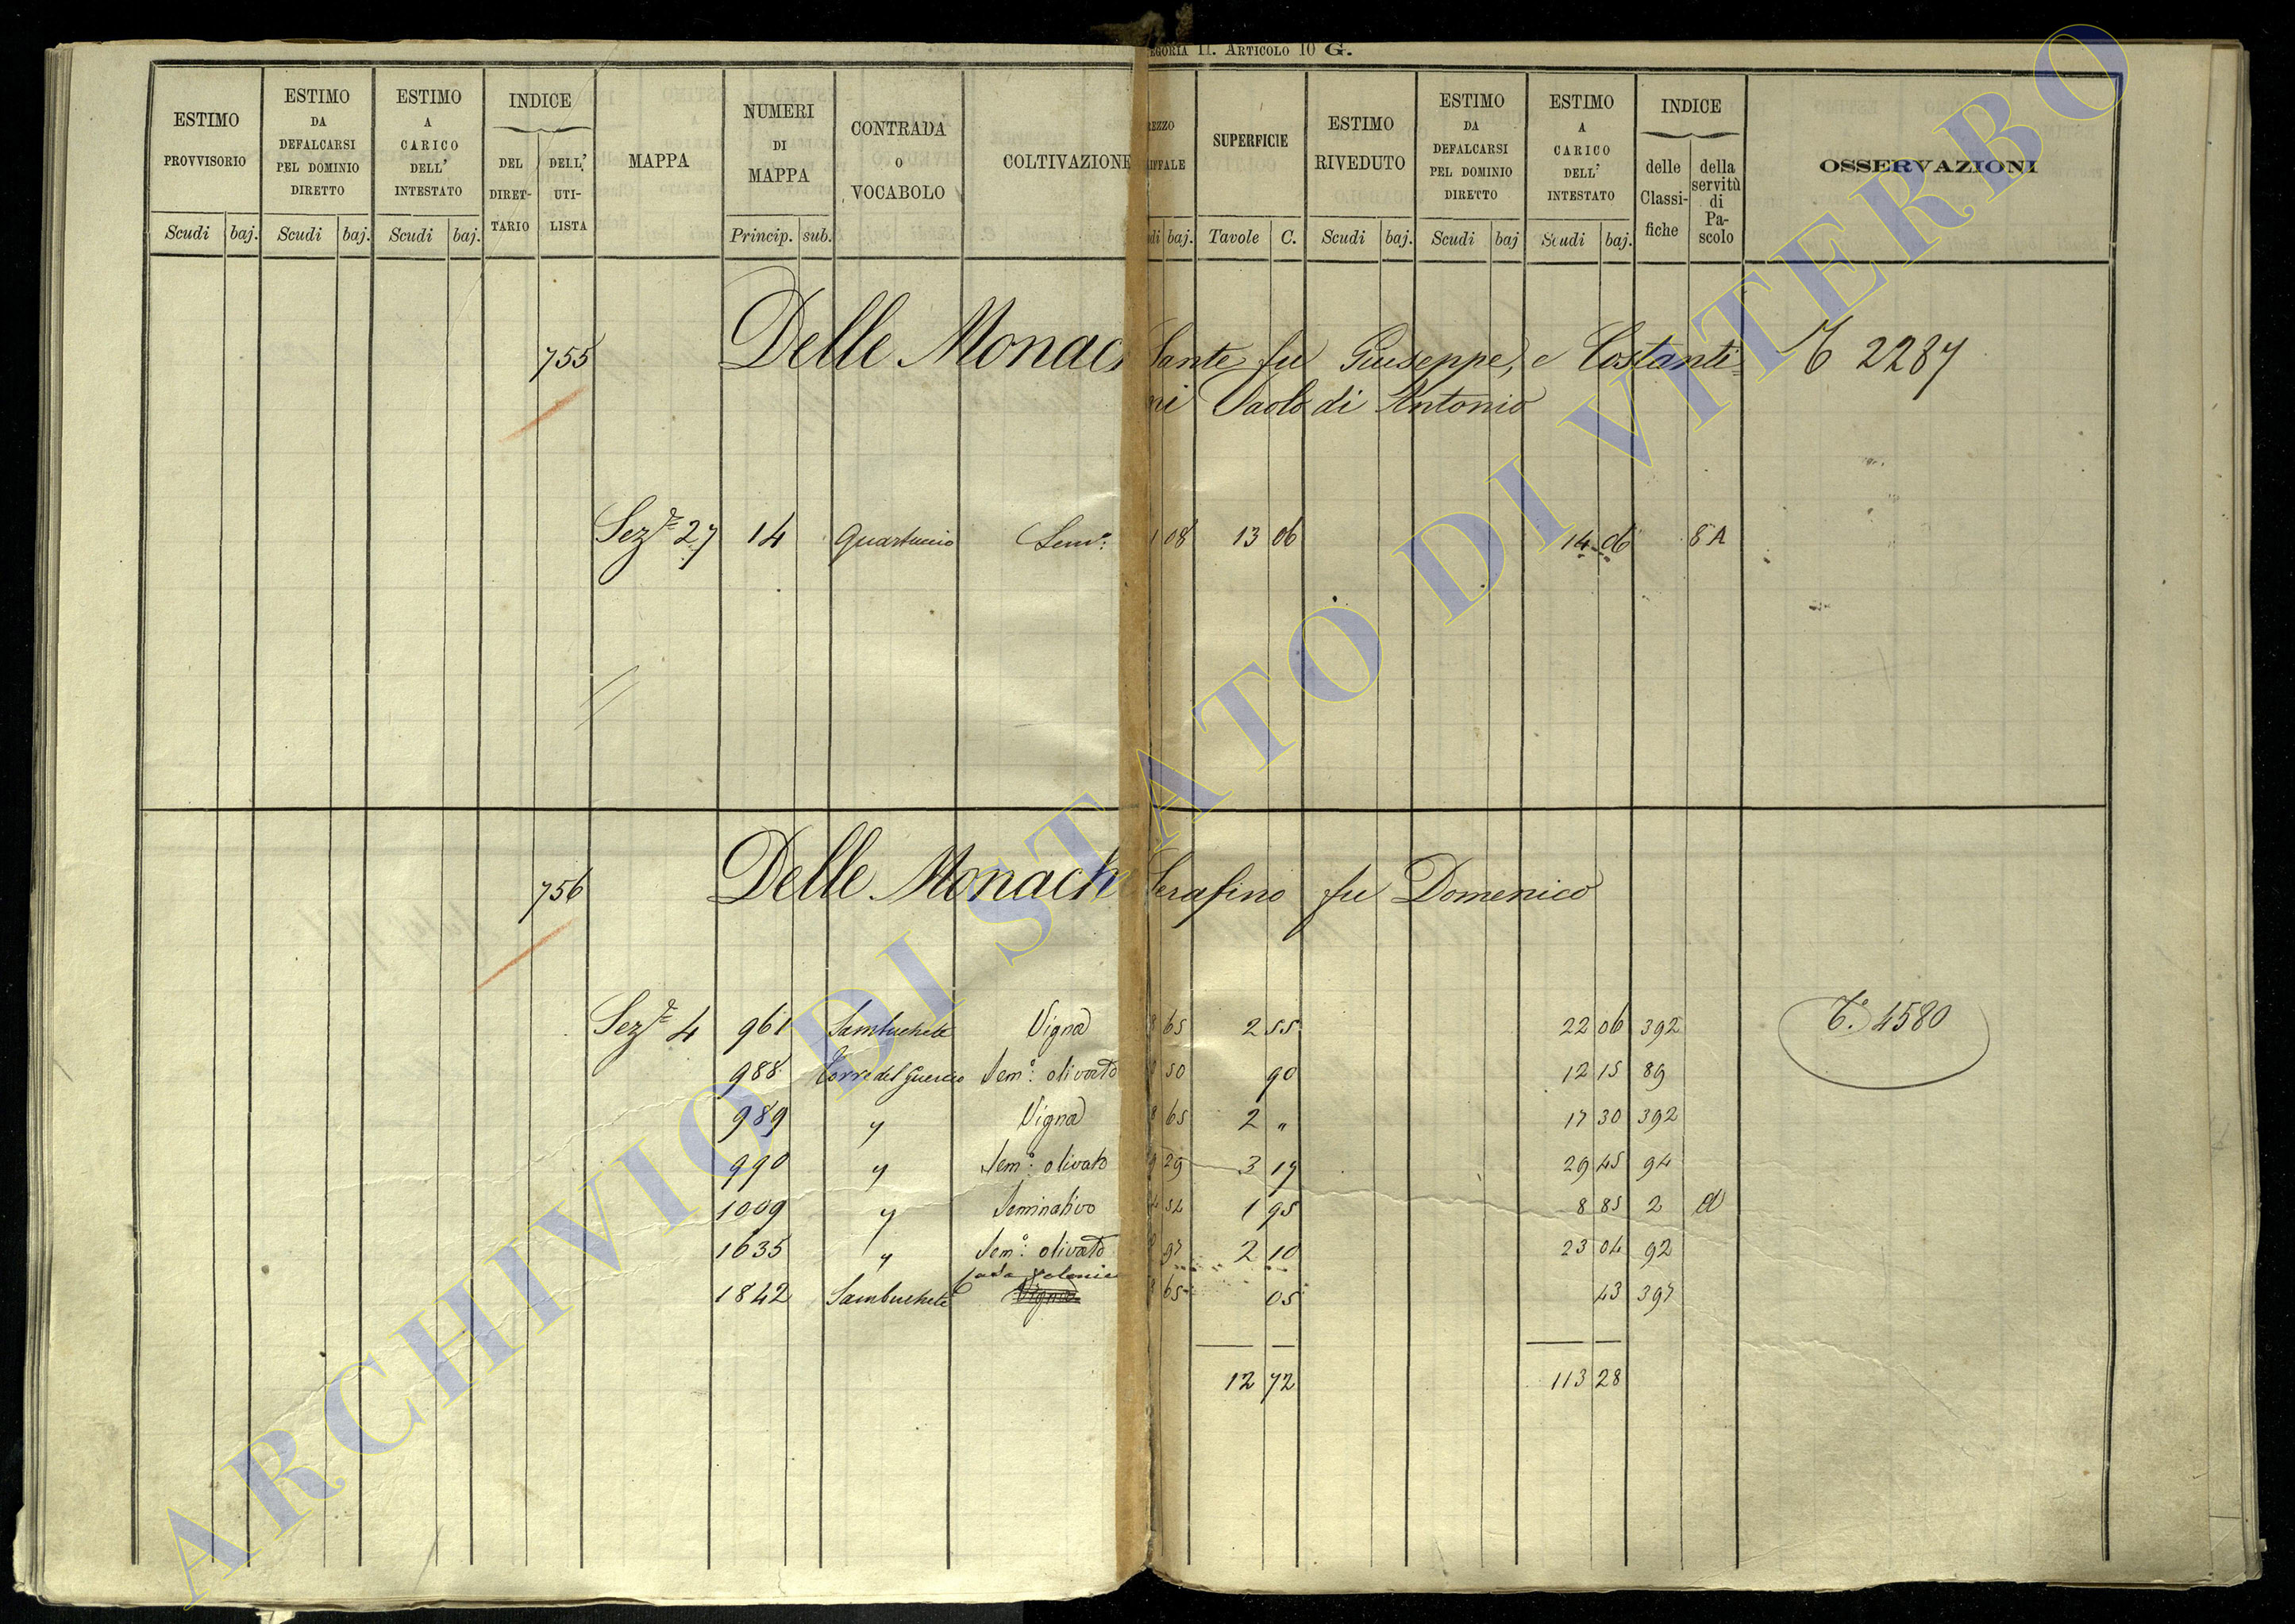 EGORIA II. ARTICOLO 10 G.
ESTIMO PROVVISORIO Scudi baj.
ESTIMO DA DEFALCARSI PEL DOMINIO DIRETTO Scudi baj.
ESTIMO A CARICO DELL' INTESTATO Scudi baj.
INDICE DEL DIRET-TARIO DELL' UTI-LISTA
MAPPA
NUMERI DI MAPPA Princip. sub.
CONTRADA O VOCABOLO
COLTIVAZIONE
REZZO IFFALE di baj.
SUPERFICIE Tavole C.
ESTIMO RIVEDUTO Scudi baj.
ESTIMO DA DEFALCARSI PEL DOMINIO DIRETTO Scudi baj
ESTIMO A CARICO DELL' INTESTATO Scudi baj.
INDICE delle Classi-fiche della servitù di Pa-scolo
OSSERVAZIONI
755 Delle Monac Sante fu Giuseppe, e Costanti= T 2287
ni Paolo di Antonio
Sez.e 27 14 Quartuccio Sem.o 1 08 13 06 14 06 8 A
756 Delle Monach Serafino fu Domenico
Sez.e 4 961 Sambuchete Vigna 8 65 2 55 22 06 392 T. 4580
988 Torre del Guercio Sem.o olivato 50 90 12 15 89
989 " Vigna 8 65 2 " 17 30 392
990 " Sem.o olivato 9 29 3 17 29 45 94
1009 " Seminativo 4 54 1 95 8 85 2 A
1635 " Sem.o olivato 97 2 10 23 04 92
Casa colonica
1842 Sambuchete Vigna 8 65 05 43 397
12 72 113 28
ARCHIVIO DI STATO DI VITERBO